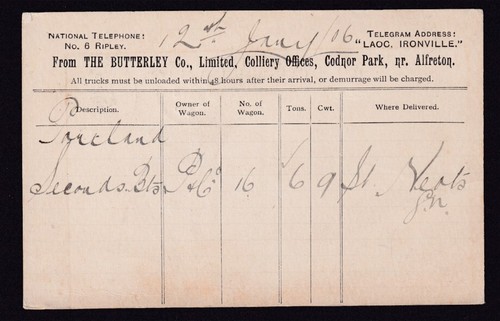 NATIONAL TELEPHONE:
No. 6 RIPLEY.
12th Jany /06
TELEGRAM ADDRESS:
"LAOC, IRONVILLE."
From THE BUTTERLEY Co., Limited, Colliery Offices, Codnor Park, nr. Alfreton.
All trucks must be unloaded within 48 hours after their arrival, or demurrage will be charged.
Description. Owner of Wagon. No. of Wagon. Tons. Cwt. Where Delivered.
Seconds 16 6 9 St. Neots